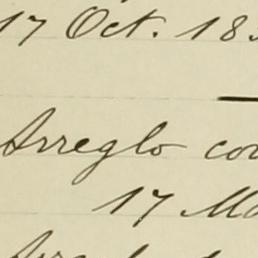 17 Oct. 18
Arreglo co
17 M